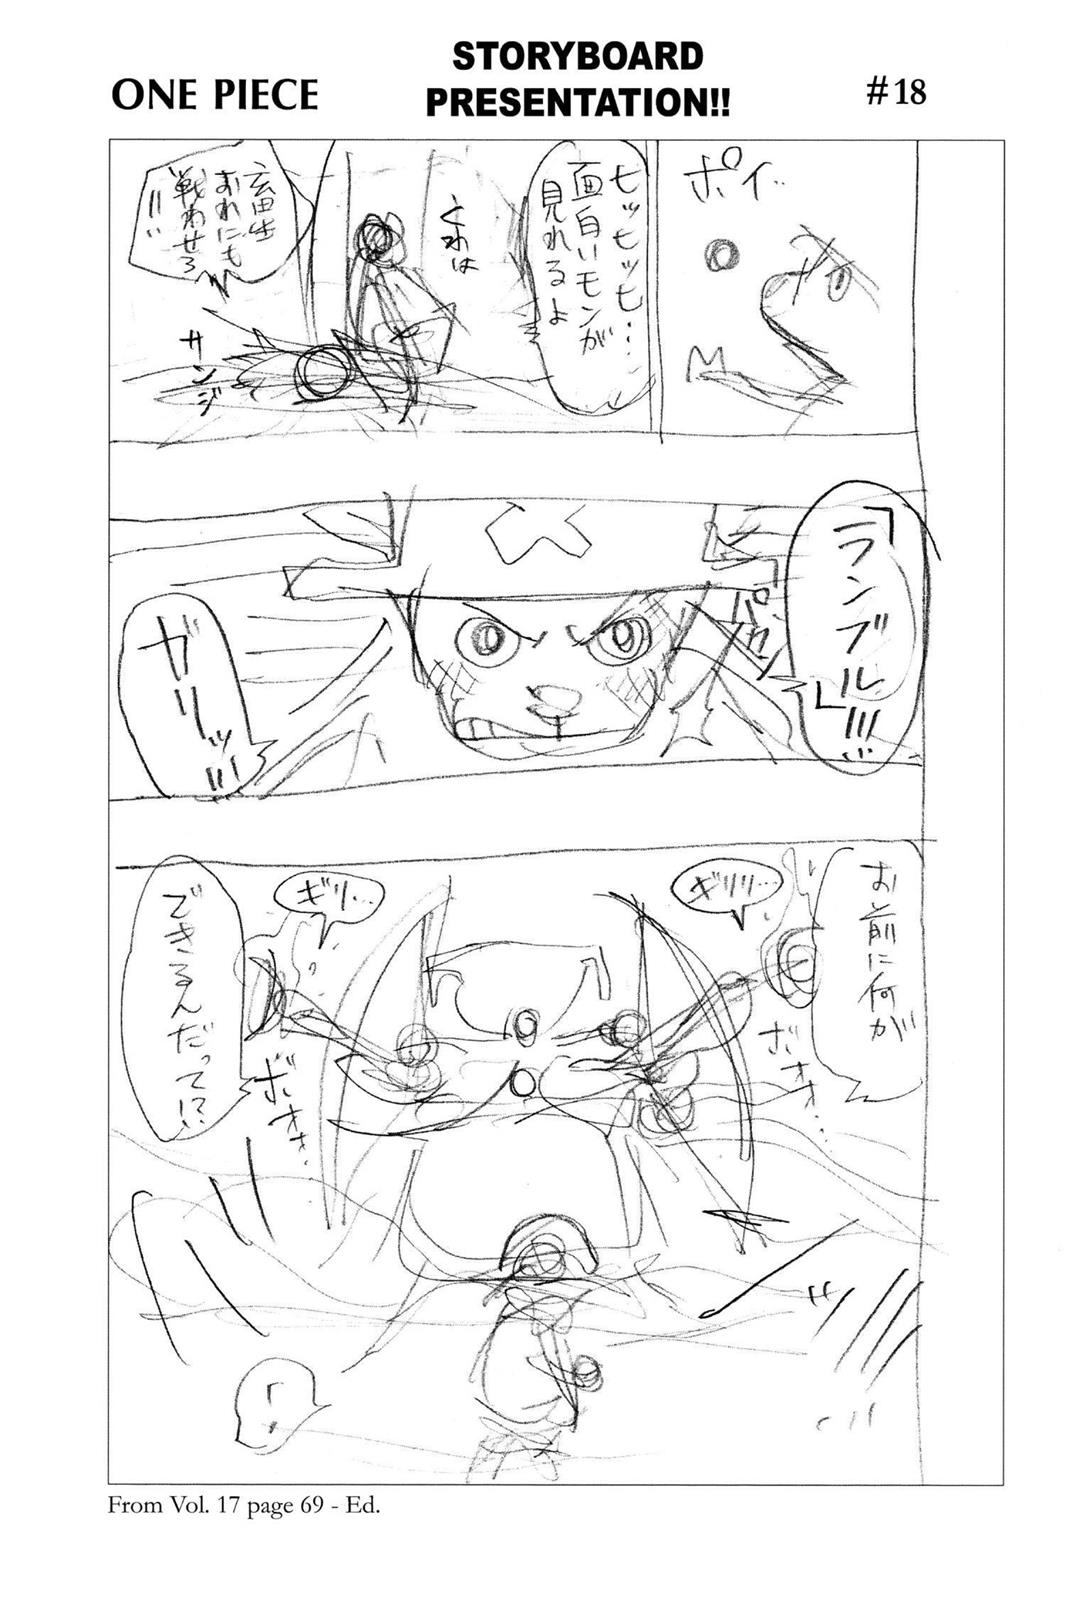 ONE PIECE
STORYBOARD
PRESENTATION!!
#18
ポイ..
ヒッヒッヒ…
面白いモンが
見れるよ
くれは
おれにも
戦わせろ
!!
サンジ
「ランブル!!!」
パカッ
ガリッ!!!
お前に何が
ギリリ…
ボオオ…
ギリ…
ボオオ.
できるんだって!?
From Vol. 17 page 69 - Ed.